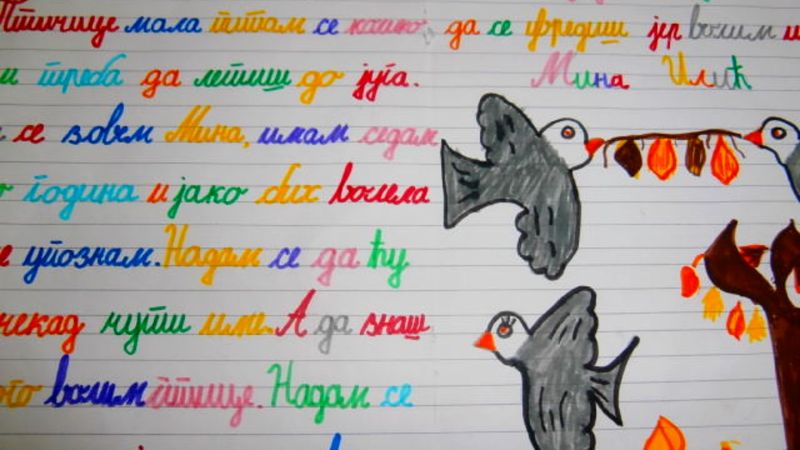 Птичице мала питам се како да се уредиш јер волим и
и треба да летиш до југа. Мина Илић
се зовем Мина, имам седам
година и јако бих волела
упознам. Надам се да ћу
некад чути или. А да знаш
волим птице. Надам се